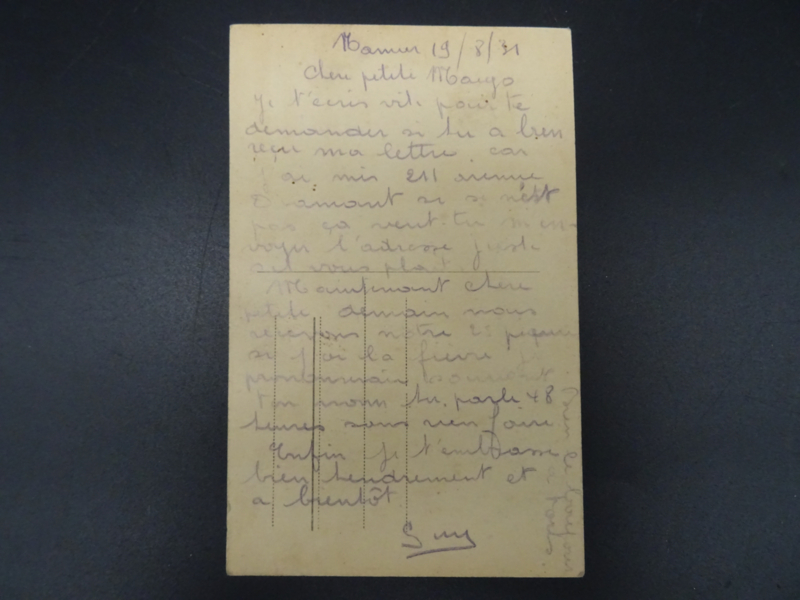 Namur 19/8/31
Chère petite Margo
Je t'ecris vite pour te
demander si tu a bien
reçu ma lettre car
je mis 211 avenue
D'amant si se n'est
pas ça veut-tu m'en-
voyer l'adresse juste
sil vous plait.
Maintenant chère
petite demain nous
recevons notre 2e piqure
si j'ai la fièvre je
prononcerai souvent
ton nom tu parle 48
heures sans rien faire.
Enfin je t'embrasse
bien tendrement et
a bientôt
Guy
bien le bonjour
a